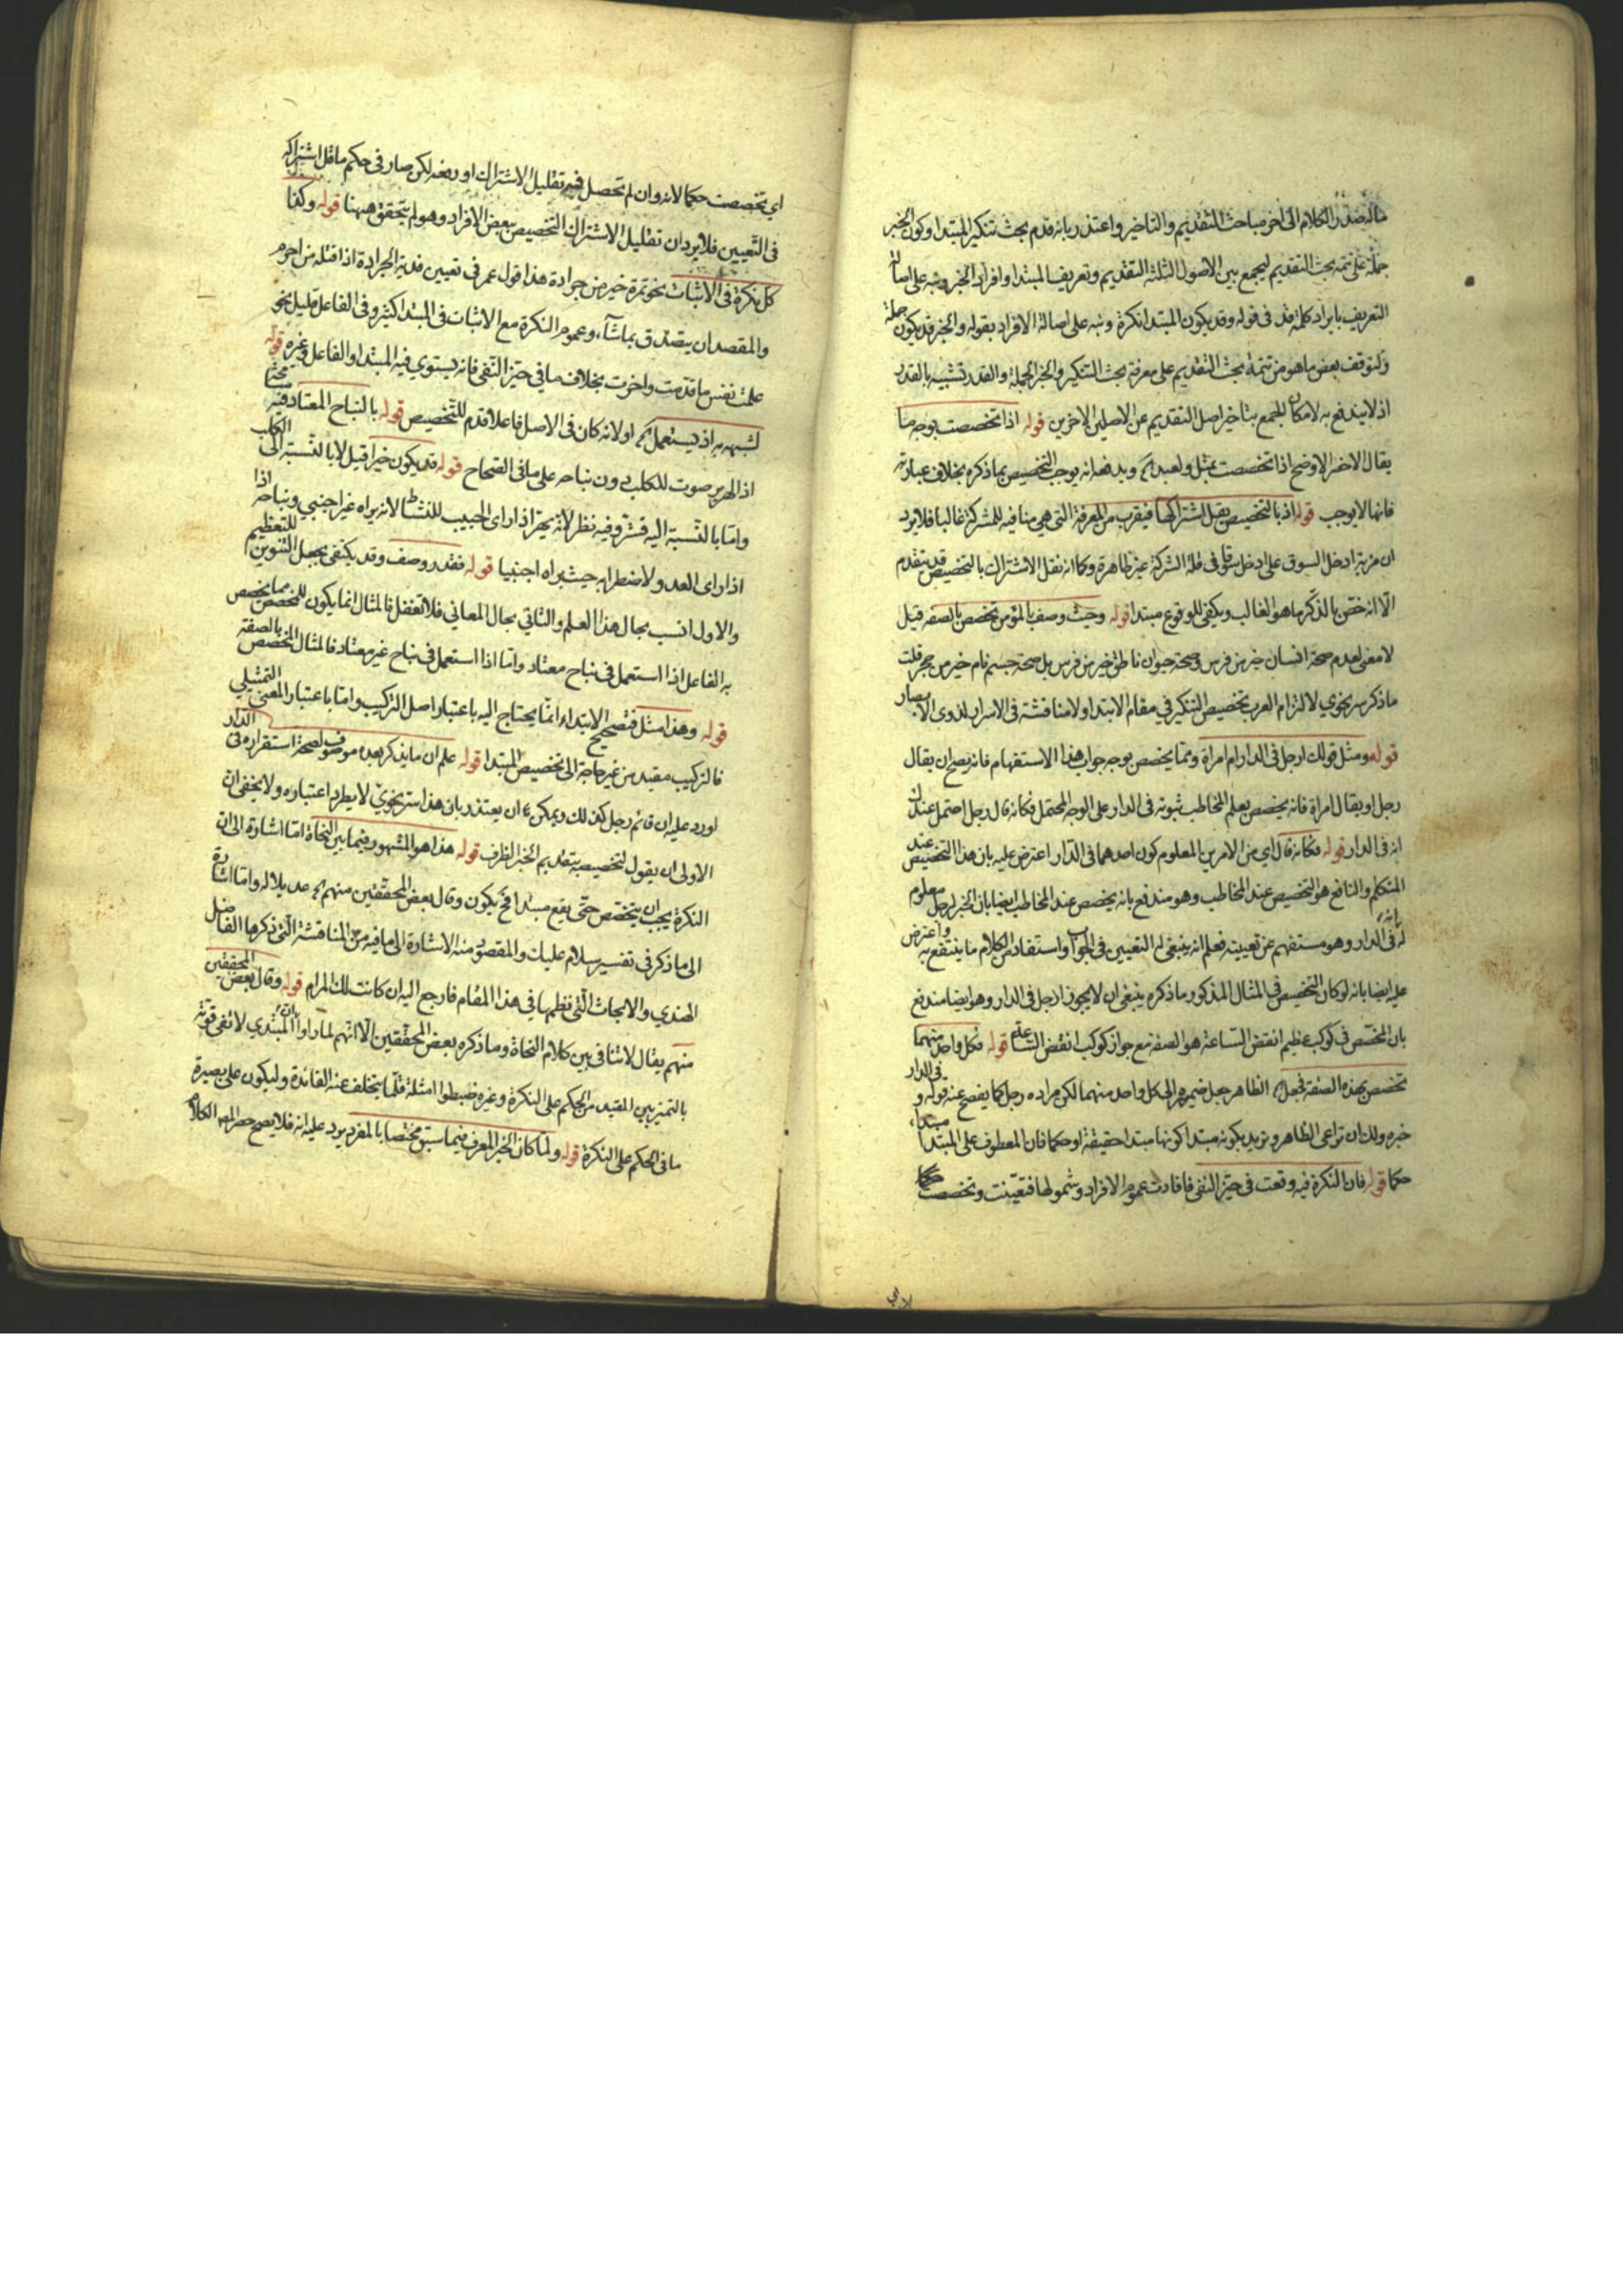 ماله صدر الكلام الى اخر مباحث التقديم والتاخير واعتذر بانه قدم بحث تنكير المبتدا وكون الخبر
جملة على تتمة بحث التقديم ليجمع بين الاصول الثلثة التقديم وتعريف المبتدا وافراد الخبر ونبه على اصالة
التعريف بايراد كلمة قد فى قوله وقد يكون المبتدا نكرة ونبه على اصالة الافراد بقوله والخبر قد يكون جملة
ولتوقف بعض ما هو من تتمة بحث التقديم على معرفة بحث التنكير والخبر الجملة والقدر تشبيه بالقدر
اذ لا يندفع به لامكان الجمع بتاخير اصل التقديم عن الاصلين الاخرين قوله اذا تخصصت بوجه ما
يقال الاخصر الاوضح اذا تخصصت بمثل ولعبد ويدفعه انه يوجب التخصيص بما ذكره بخلاف عبارته
فانها لا يوجب قوله اذ بالتخصيص يقل اشتراكها فيقرب من المعرفة التى هي منافية للشركة غالبا فلا يرد
ان مرتبة ادخل السوق على ادخل سوقا فى قلة الشركة غير ظاهرة وكما انه تقل الاشتراك بالتخصيص قد ينعدم
الا انه خص بالذكر ما هو الغالب ويكفى للوقوع مبتدا قوله وحيث وصف بالمؤمن تخصص بالصفة قيل
لا معنى لعدم صحة انسان خير من فرس وصحة حيوان ناطق خير من فرس بل صحة جسم نام خير من حجر قلت
ما ذكر سر نحوي لالتزام العرب تخصيص التنكير في مقام الابتدا ولا مناقشة فى الاسرار لذوى الابصار
قوله ومثل قولك ارجل فى الدار ام امراة ومما يخصص بوجه جواب هذا الاستفهام فانه يصح ان يقال
رجل او يقال امراة فانه يخصص بعلم المخاطب ثبوته فى الدار على الوجه المحتمل فكانه قال رجل احتمل عندك
انه فى الدار قوله فكانه قال اي من الامرين المعلوم كون احدهما فى الدار اعترض عليه بان هذا التخصيص عند
المتكلم والنافع هو التخصيص عند المخاطب وهو مندفع بانه يخصص عند المخاطب ايضا بان الخبر لرجل معلوم
له فى الدار وهو مستفهم عن تعيينه فعلم انه ينبغى له التعيين فى الجواب واستفاد من الكلام ما ينتفع به واعترض
عليه ايضا بانه لو كان التخصيص في المثال المذكور ما ذكره ينبغى ان لا يجوز ارجل فى الدار وهو ايضا مندفع
بان المخصص فى كوكب عظيم انقض الساعة هو الصفة مع جواز كوكب انقض الساعة قوله فكل واحد منهما
تخصص بهذه الصفة فجعل الظاهر جعل ضميره الى كل واحد منهما لكن مراده رجل كما يفصح عنه قوله و فى الدار
خبره ولك ان تراعى الظاهر وتريد بكونه مبتدا كونها مبتدا حقيقة او حكما فان المعطوف على المبتدا مبتدا
حكما قوله فان النكرة فيه وقعت فى حيز النفى فافادت عموم الافراد وشمولها فتعينت وتخصصت حكما
اي تخصصت حكما لانه وان لم تحصل فيه تقليل الاشتراك او رفعه لكن صار فى حكم ما قل اشتراكه
فى التعيين فلا يرد ان تقليل الاشتراك التخصيص ببعض الافراد وهو لم يتحقق ههنا قوله وكذا
كل نكرة فى الاثبات نحو تمرة خير من جرادة هذا قول عمر فى تعيين فدية الجرادة اذا قتله من احرم
والمقصد ان يتصدق بما شاء وعموم النكرة مع الاثبات فى المبتدا كثير وفى الفاعل قليل نحو
علمت نفس ما قدمت واخرت بخلاف ما في حيز النفى فانه يستوي فيه المبتدا والفاعل وغيره قوله
لشبهه به اذ يستعمل او لانه كان فى الاصل فاعلا قدم للتخصيص قوله بالنباح المعتاد فيه
اذ الهرير صوت للكلب دون نباحه على ما فى الصحاح قوله قد يكون خيرا قيل لا بالنسبة الى الكلب
واما بالنسبة اليه فشر وفيه نظر لانه يهر اذا راى الحبيب للنشاط لانه يراه غير اجنبي ونباحه اذا
اذا راى العدو ولاضطرابه حيث يراه اجنبيا قوله فقدر وصف وقد يكتفى بجعل التنوين للتعظيم
والاول انسب بحال هذا العلم والثاني بحال المعاني فلا تغفل فالمثال انما يكون للمخصص مما يخصص
به الفاعل اذا استعمل فى نباح معتاد واما اذا استعمل فى نباح غير معتاد فالمثال المخصص بالصفة
قوله وهذا مثل فتصحيح الابتداء انما يحتاج اليه باعتبار اصل التركيب واما باعتبار المعنى التمثيلي
فالتركيب مفيد من غير حاجة الى تخصيص المبتدا قوله علم ان ما يذكر بعده موصوف لصحة استقراره فى الدار
اورد عليه ان قائم رجل كذلك ويمكن ان يعتذر بان هذا سر نحوي لا يطرد اعتباره ولا يخفى ان
الاولى ان يقول لتخصيصه بتقديم الخبر الظرف قوله هذا هو المشهور فيما بين النحاة اما اشارة الى ان
النكرة يجب ان يتخصص حتى يقع مبتدا يكون وقال بعض المحققين منهم عديلا له واما اشارة
الى ما ذكر في تفسير سلام عليك والمقصود منه الاشارة الى ما فيه من المناقشة التي ذكرها الفاضل
الهندي والابحاث التى نظمها في هذا المقام فارجع اليه ان كانت لك المرام قوله وقال بعض المحققين
منهم يقال لا تنافى بين كلام النحاة وما ذكره بعض المحققين الا انهم لما راوا ان المبتدي لا تفى قوته
بالتمييز بين المفيد من الحكم على النكرة وغيره ضبطوا امثلة قلما يتخلف عنه الفائدة وليكون على بصيرة
ما فى الحكم على النكرة قوله ولما كان الخبر المعرف فيما سبق مختصا بالمفرد يرد عليه انه فلا يصح حصر الكلام